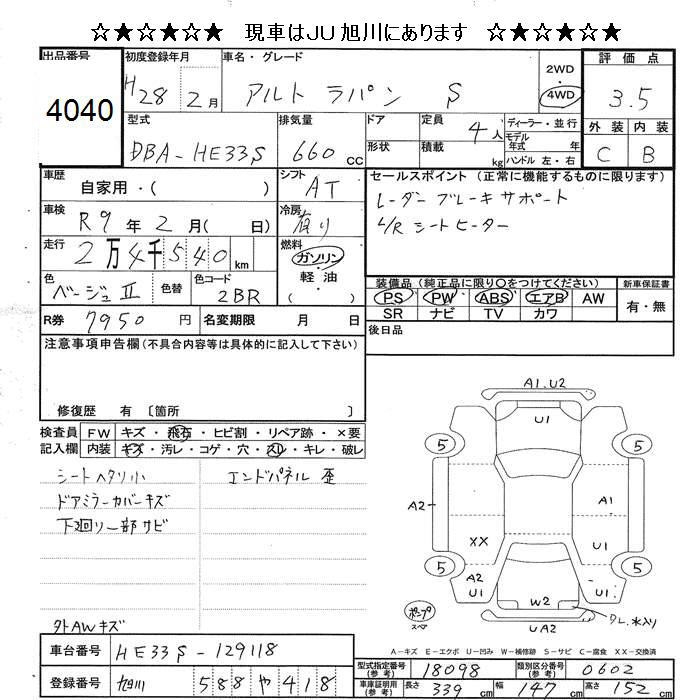 ☆★☆★☆★ 現車はJU旭川にあります ☆★☆★☆★
出品番号 4040
初度登録年月 H28 2月
車名・グレード アルト ラパン S
2WD 4WD
評価点 3.5
外装 内装
C B
型式 DBA-HE33S
排気量 660 CC
ドア 形状
定員 4人
積載 kg
ディーラー・並行
モデル年式 年
ハンドル 左・右
車歴 自家用・( )
シフト AT
セールスポイント (正常に機能するものに限ります)
レーダーブレーキサポート
L/R シートヒーター
車検 R9年2月( 日)
冷房 有り
走行 2万4千540km
燃料 ガソリン・軽油・( )
色 ベージュII
色替
色コード 2BR
装備品 (純正品に限り〇をつけてください)
新車保証書
PS PW ABS エアB AW
有・無
SR ナビ TV カワ
R券 7950円
名変期限 月 日
後日品
注意事項申告欄(不具合内容等は具体的に記入して下さい)
修復歴 有 〔箇所 〕
検査員記入欄
FW キズ・飛石・ヒビ割・リペア跡・×要
内装 キズ・汚レ・コゲ・穴・スレ・キレ・破レ
シートヘタリ小
エンドパネル 歪
ドアミラーカバーキズ
下廻り一部サビ
外AWキズ
A1.U2
U1
5 5
A2 A1
XX U1
5 5
A2 U1
U1
W2
ポンプ スペア
UA2
クレ.水入り
A-キズ E-エクボ U-凹み W-補修跡 S-サビ C-腐食 XX-交換済
車台番号 HE33S-129118
型式指定番号(参考) 18098
類別区分番号(参考) 0602
登録番号 旭川 588 や 418
車庫証明用(参考) 長さ 339cm 幅 147cm 高さ 152cm